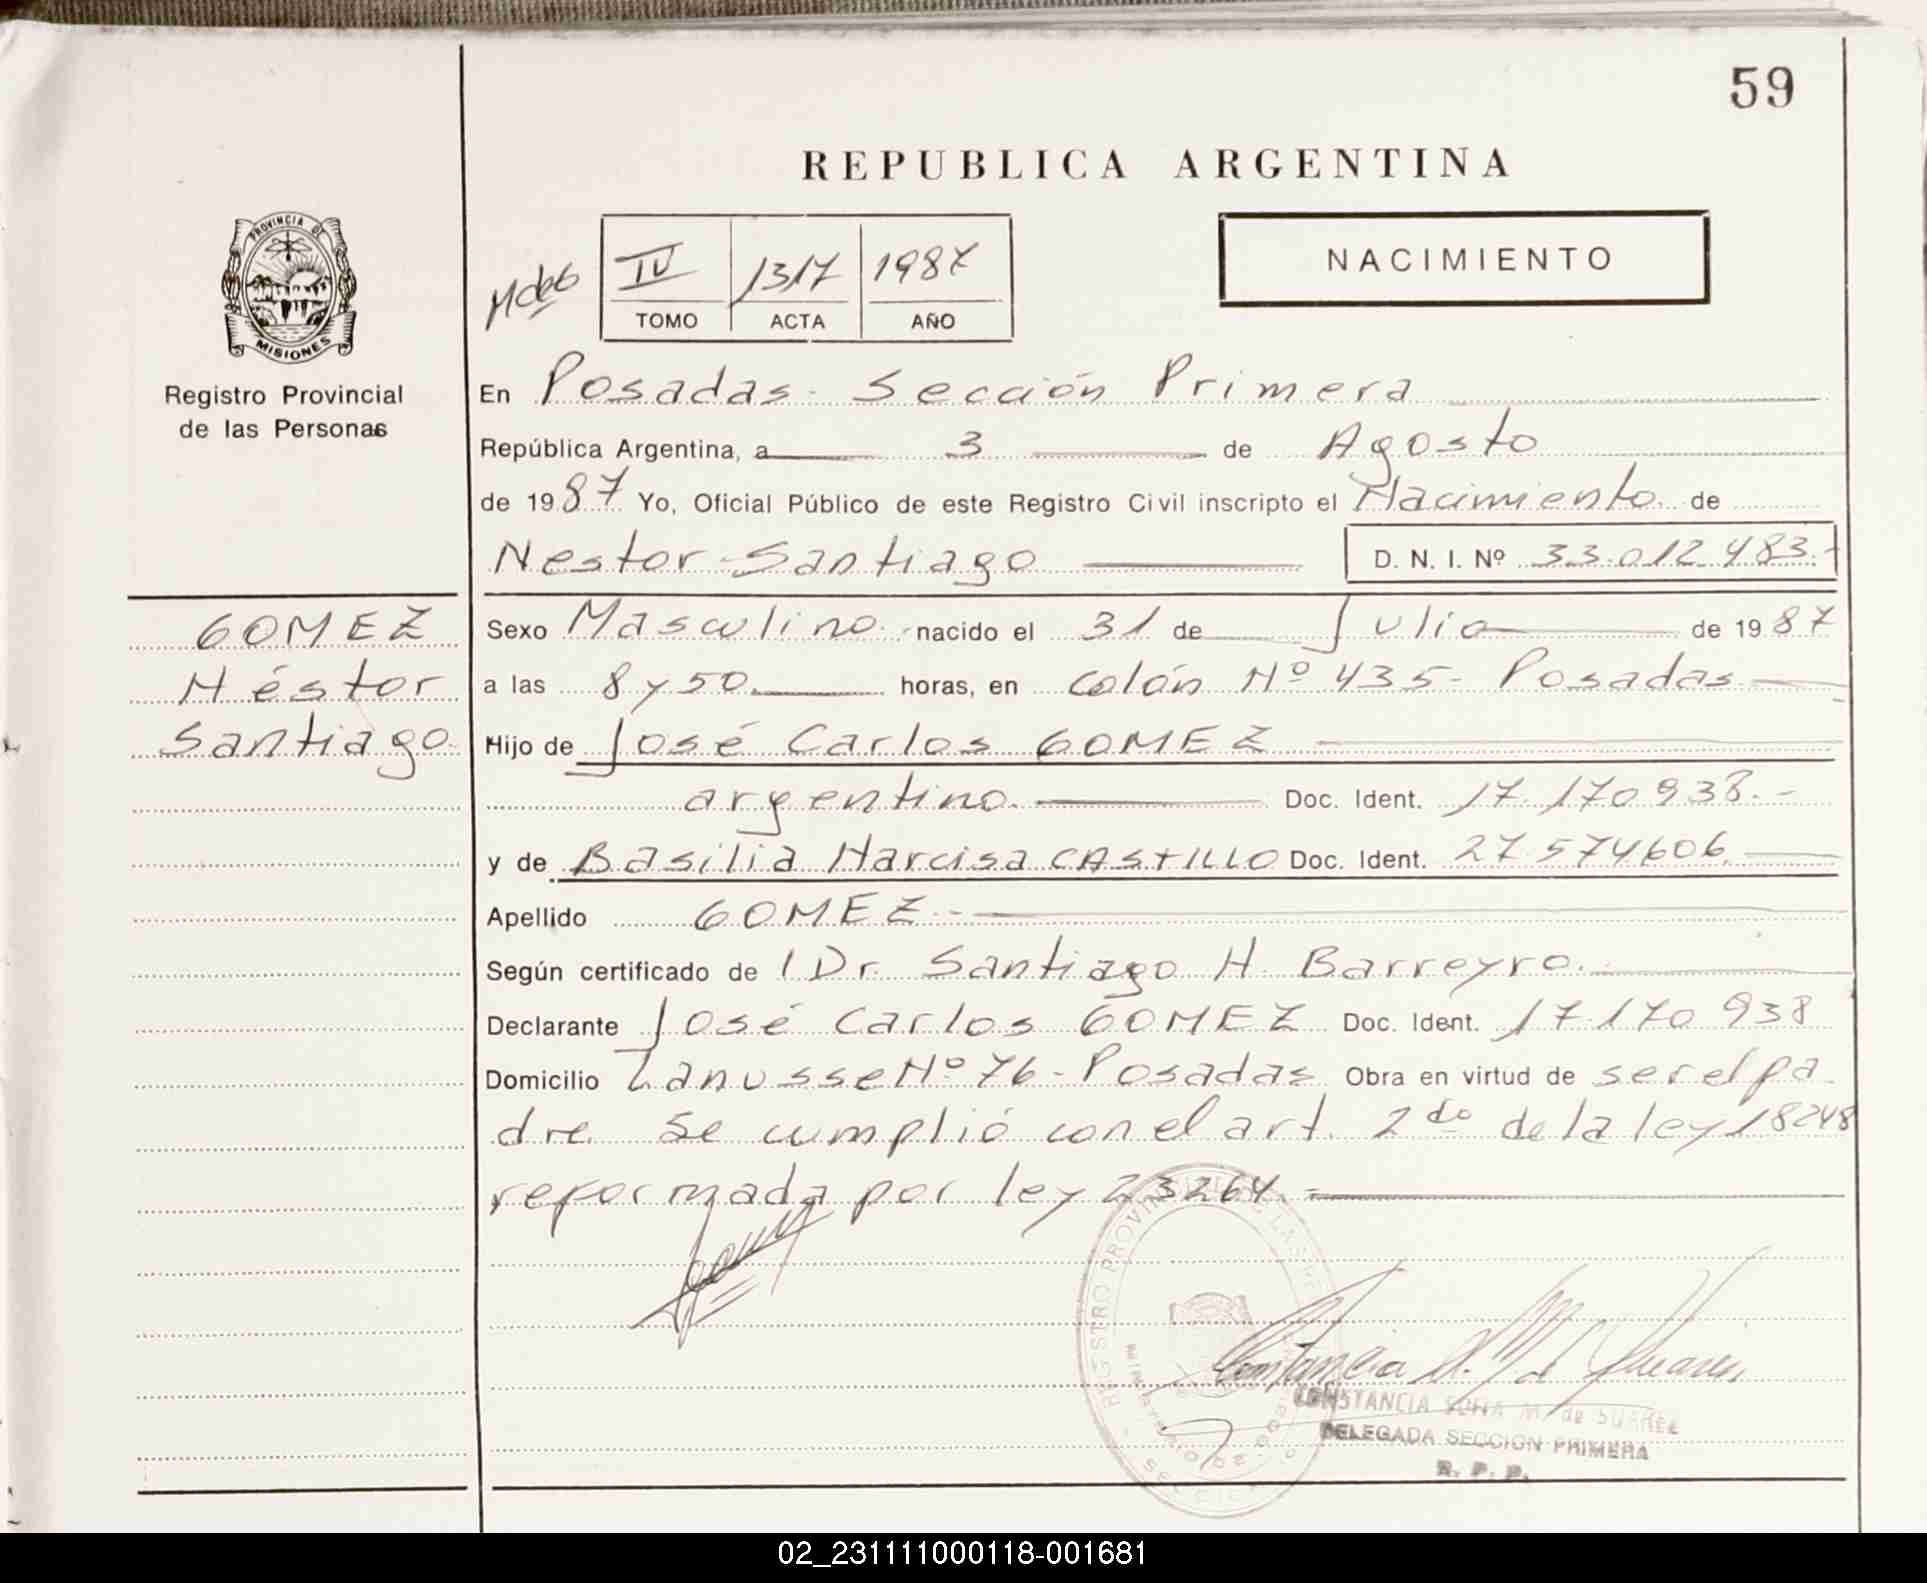 59
REPUBLICA ARGENTINA
PROVINCIA DE
MISIONES
Registro Provincial
de las Personas
IV 1317 1987
TOMO ACTA AÑO
NACIMIENTO
En Posadas - Sección Primera
República Argentina, a 3 de Agosto
de 1987 Yo, Oficial Público de este Registro Civil inscripto el Nacimiento de
Nestor Santiago D. N. I. Nº 33.012.483.-
GOMEZ
Néstor
Santiago
Sexo Masculino nacido el 31 de Julio de 1987
a las 8 y 50 horas, en Colón Nº 435 - Posadas
Hijo de José Carlos GOMEZ
argentino. Doc. Ident. 17.170938.-
y de Basilia Narcisa CASTILLO Doc. Ident. 27.574606
Apellido GOMEZ.-
Según certificado de l Dr. Santiago H. Barreyro.
Declarante José Carlos GOMEZ Doc. Ident. 17.170 938
Domicilio Lanusse Nº 76 - Posadas Obra en virtud de ser el pa
dre. Se cumplió con el art. 2do de la ley 18248
reformada por ley 23264.=
CONSTANCIA SOFIA M. de SUAREZ
DELEGADA SECCION PRIMERA
R. P. P.
02_231111000118-001681